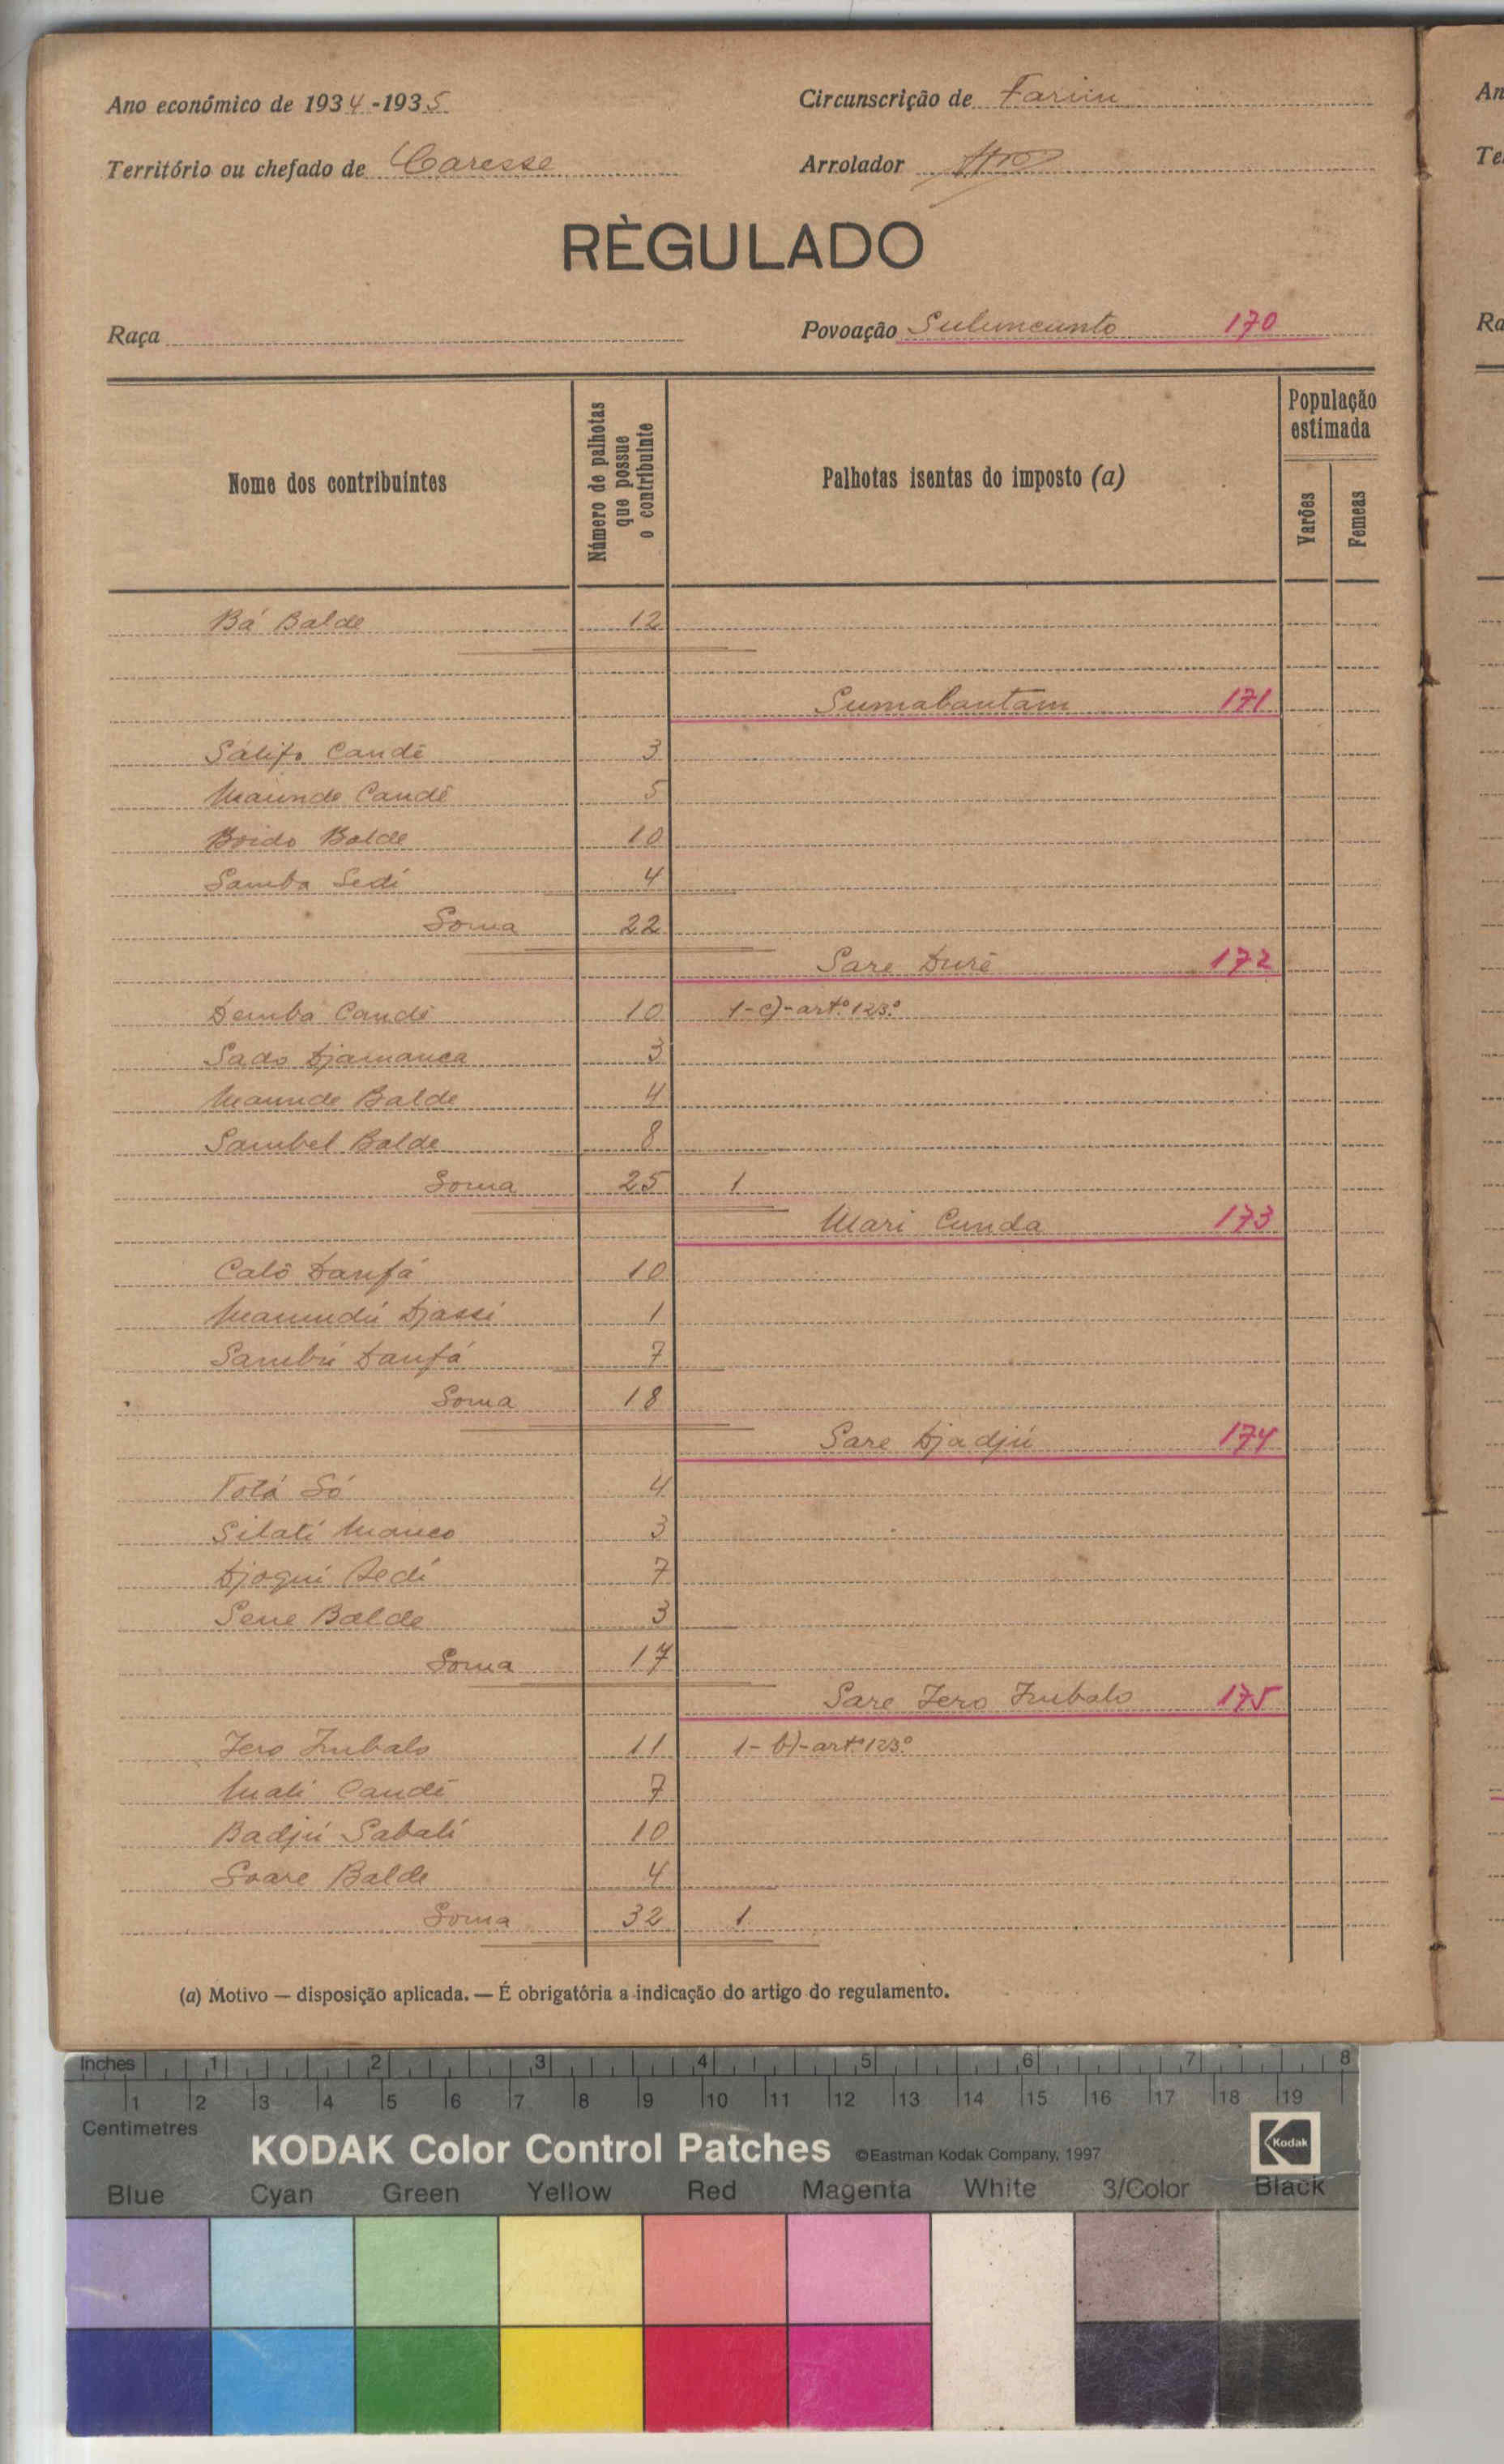 Ano económico de 1934-1935
Circunscrição de Farim
Território ou chefado de Caresse
Arrolador
RÈGULADO
Raça
Povoação Suluncunto 170
Nome dos contribuintes
Número de palhotas que possue o contribuinte
Palhotas isentas do imposto (a)
População estimada
Varões
Femeas
Bá Balde 12
Sumabantam 171
Salifo Candé 3
Maunde Candé 5
Boido Balde 10
Samba Sedi 4
Soma 22
Sare Duré 172
Demba Candé 10 1-c)-artº 123º
Sado Djamanca 3
Maunde Balde 4
Sambel Balde 8
Soma 25 1
Mari Cunda 173
Caló Danfá 10
Mamudú Djassi 1
Sambú Danfá 7
Soma 18
Sare Djadjú 174
Totá Só 4
Silati Manco 3
Djogui Sedi 7
Sene Balde 3
Soma 17
Sare Jero Imbalo 175
Jero Imbalo 11 1-b)-artº 123º
Mali Candé 7
Badjú Sabali 10
Soare Balde 4
Soma 32 1
(a) Motivo — disposição aplicada. — É obrigatória a indicação do artigo do regulamento.
An
Te
Ra
Inches 1 2 3 4 5 6 7 8
1 2 3 4 5 6 7 8 9 10 11 12 13 14 15 16 17 18 19
Centimetres
KODAK Color Control Patches ©Eastman Kodak Company, 1997 Kodak
Blue Cyan Green Yellow Red Magenta White 3/Color Black